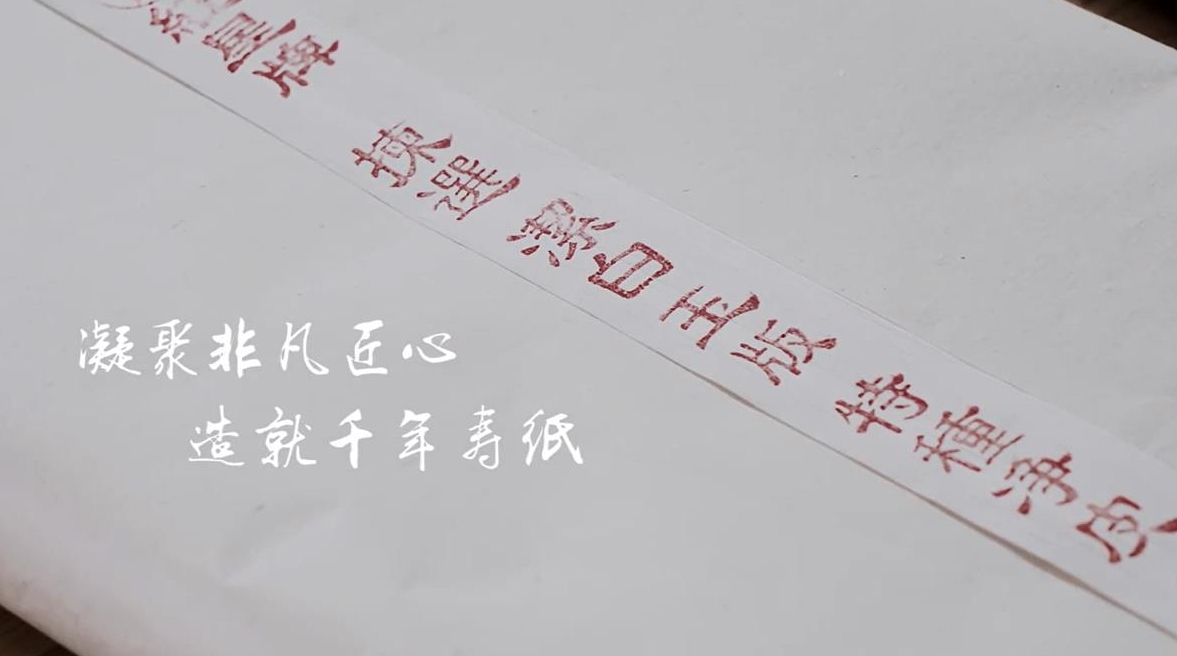 紅星牌 揀選 潔白玉版 特種淨皮
凝聚非凡匠心
造就千年寿纸